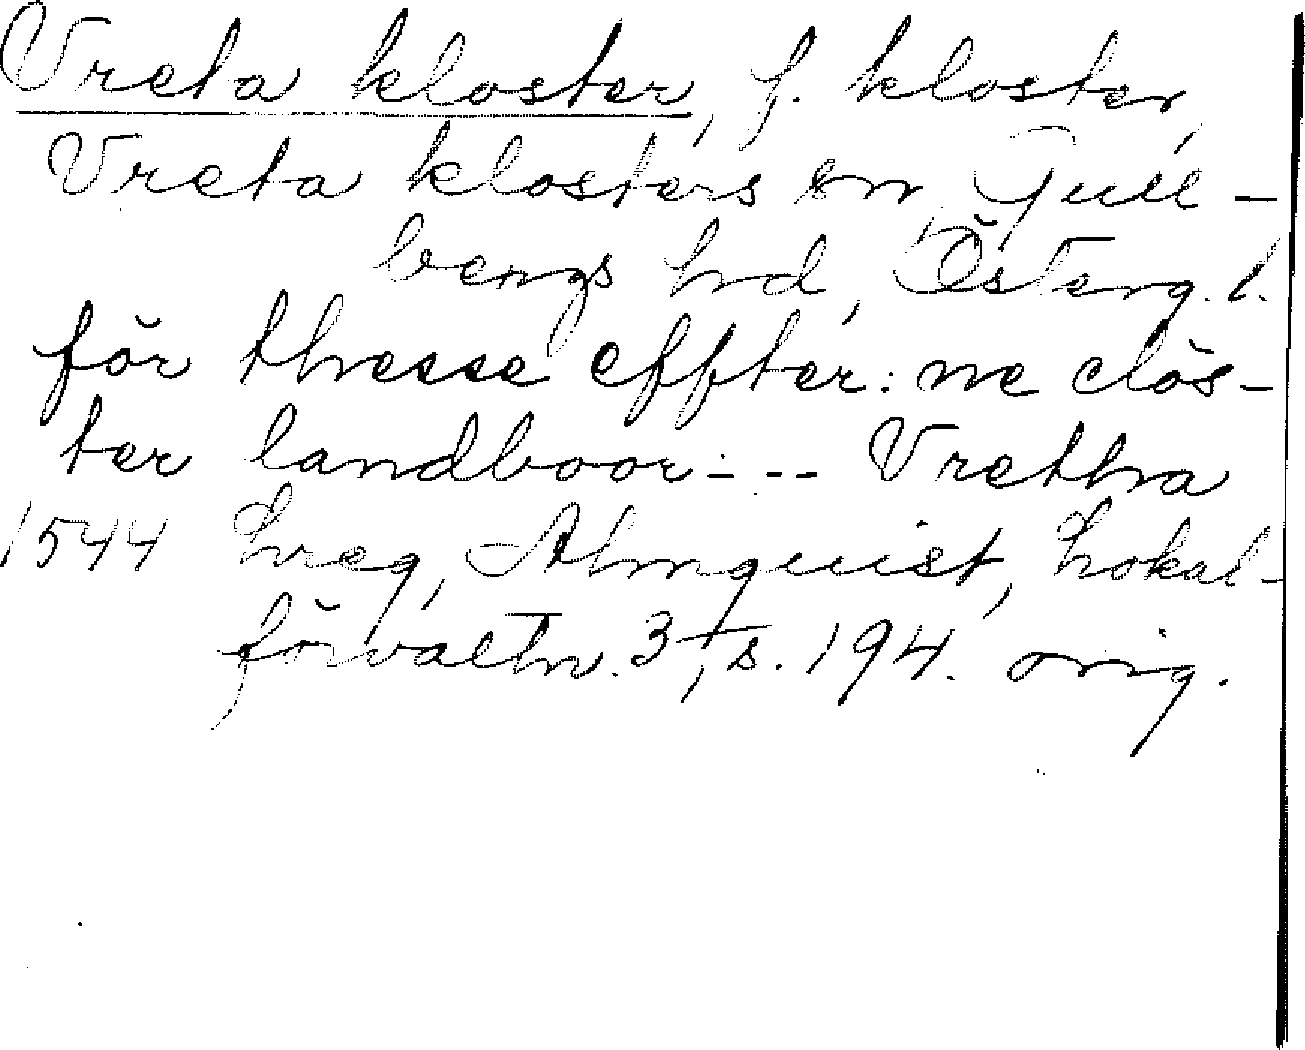 Vreta kloster, f. kloster,
Vreta klosters sn, Gull-
bergs hd, Österg. l.
för thesse effter: ne clös-
ter landboor --- Vretha
1544 hreg, Almquist, Lokal-
förvaltn. 3, s. 194. orig.